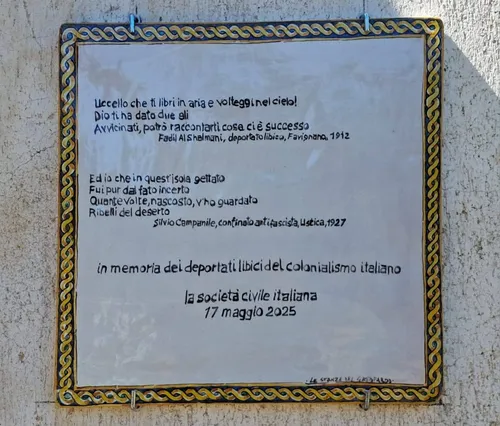 Uccello che ti libri in aria e volteggi nel cielo!
Dio ti ha dato due ali
Avvicinati, potrò raccontarti cosa ci è successo
Fadil Al Shalmani, deportato libico, Favignana, 1912
Ed io che in quest'isola gettato
Fui pur dal fato incerto
Quante volte, nascosto, v'ho guardato
Ribelli del deserto
Silvio Campanile, confinato antifascista, Ustica, 1927
in memoria dei deportati libici del colonialismo italiano
la società civile italiana
17 maggio 2025